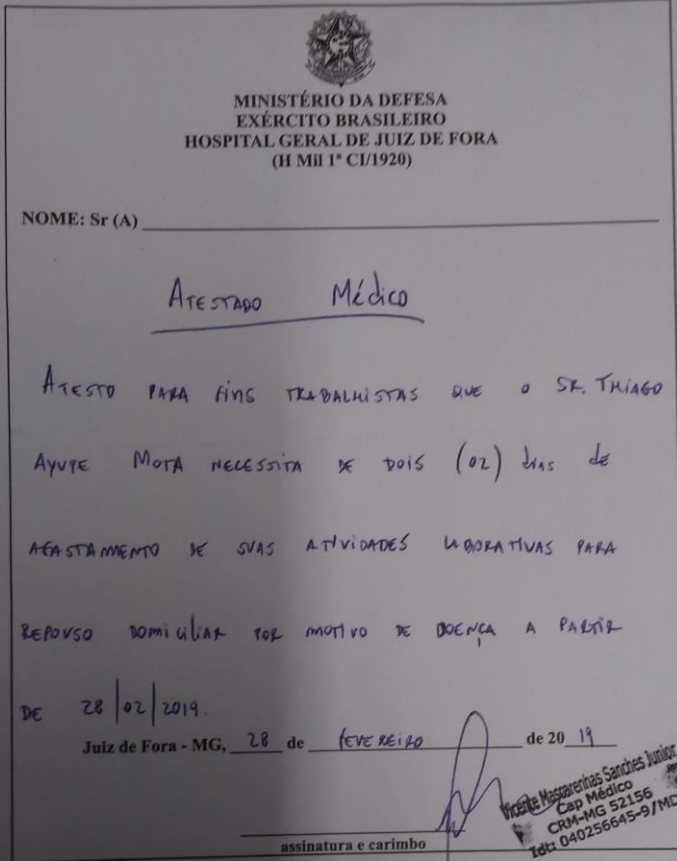 MINISTÉRIO DA DEFESA
EXÉRCITO BRASILEIRO
HOSPITAL GERAL DE JUIZ DE FORA
(H Mil 1ª CI/1920)
NOME: Sr (A)
ATESTADO MÉdico
ATESTO PARA FINS TRABALHISTAS QUE O SR. THIAGO
AYUPE MOTA NECESSITA DE DOIS (02) dias de
AFASTAMENTO DE SUAS ATIVIDADES LABORATIVAS PARA
REPOUSO DOMICILIAR POR MOTIVO DE DOENÇA A PARTIR
DE 28/02/2019.
Juiz de Fora - MG, 28 de FEVEREIRO de 20 19
Vicente Mascarenhas Sanches Junior
Cap Médico
CRM-MG 52156
Idt: 040256645-9/MD
assinatura e carimbo